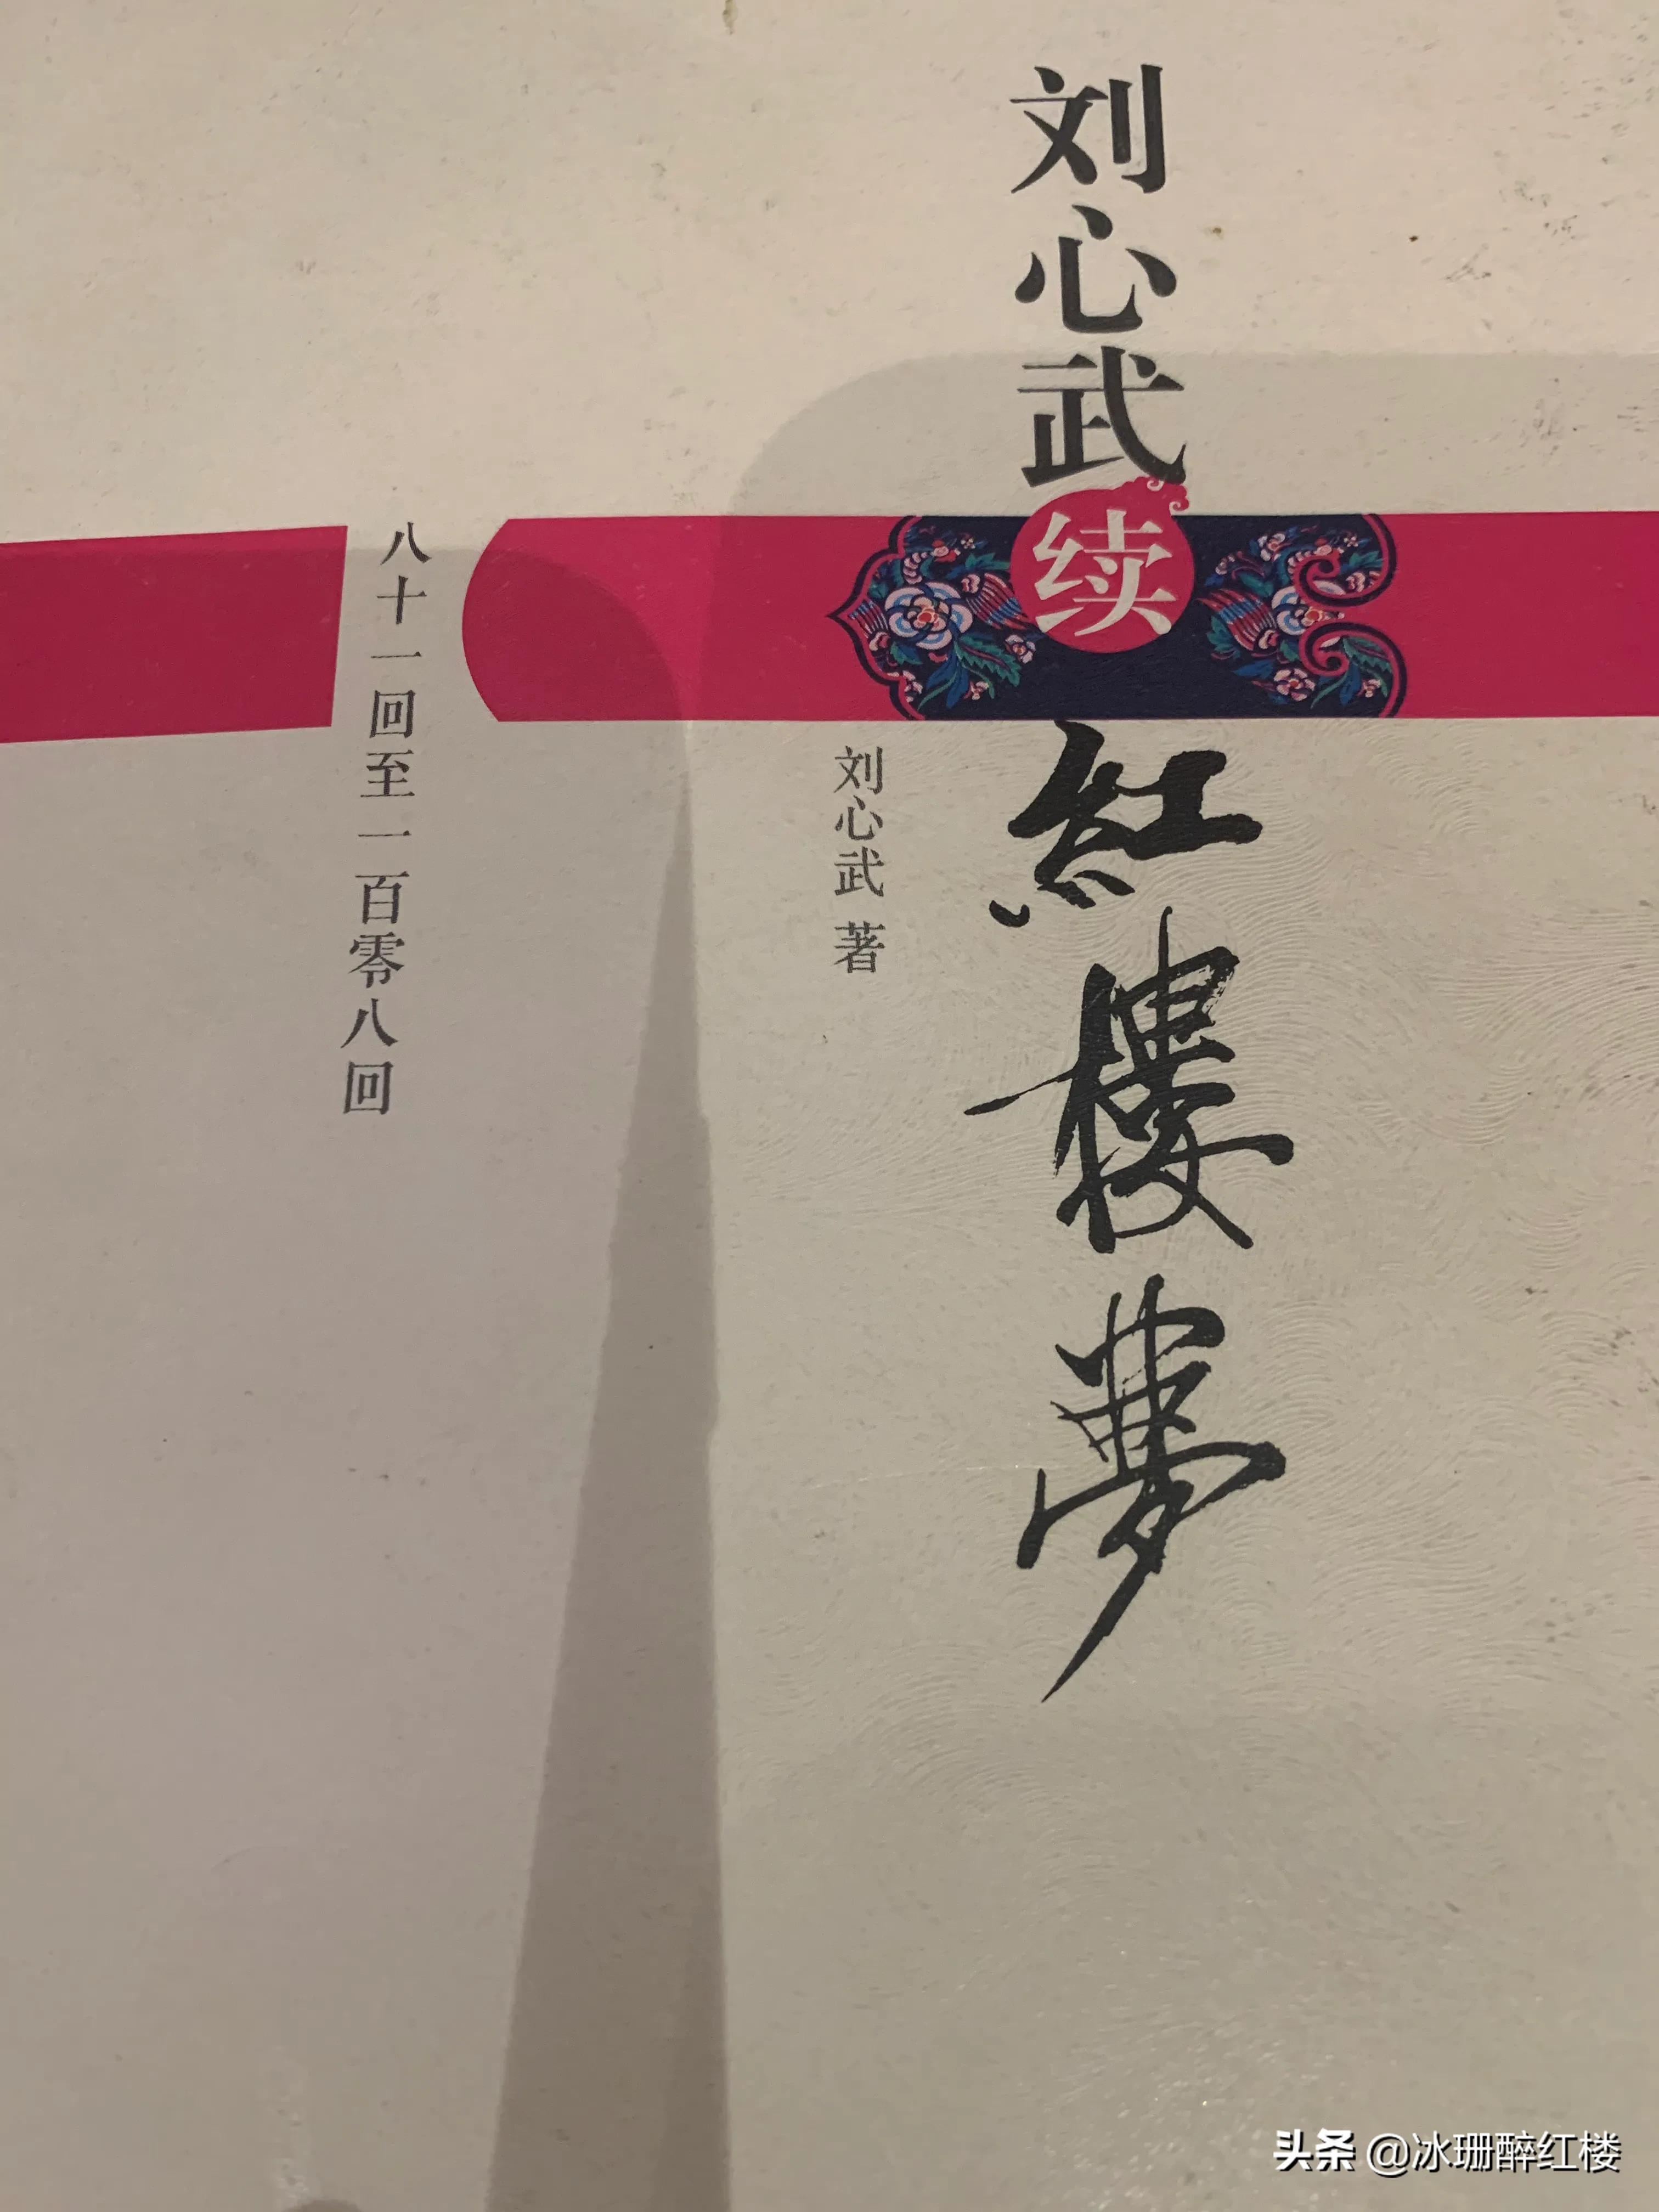 刘心武续红楼梦
刘心武 著
八十一回至一百零八回
头条 @冰珊醉红楼